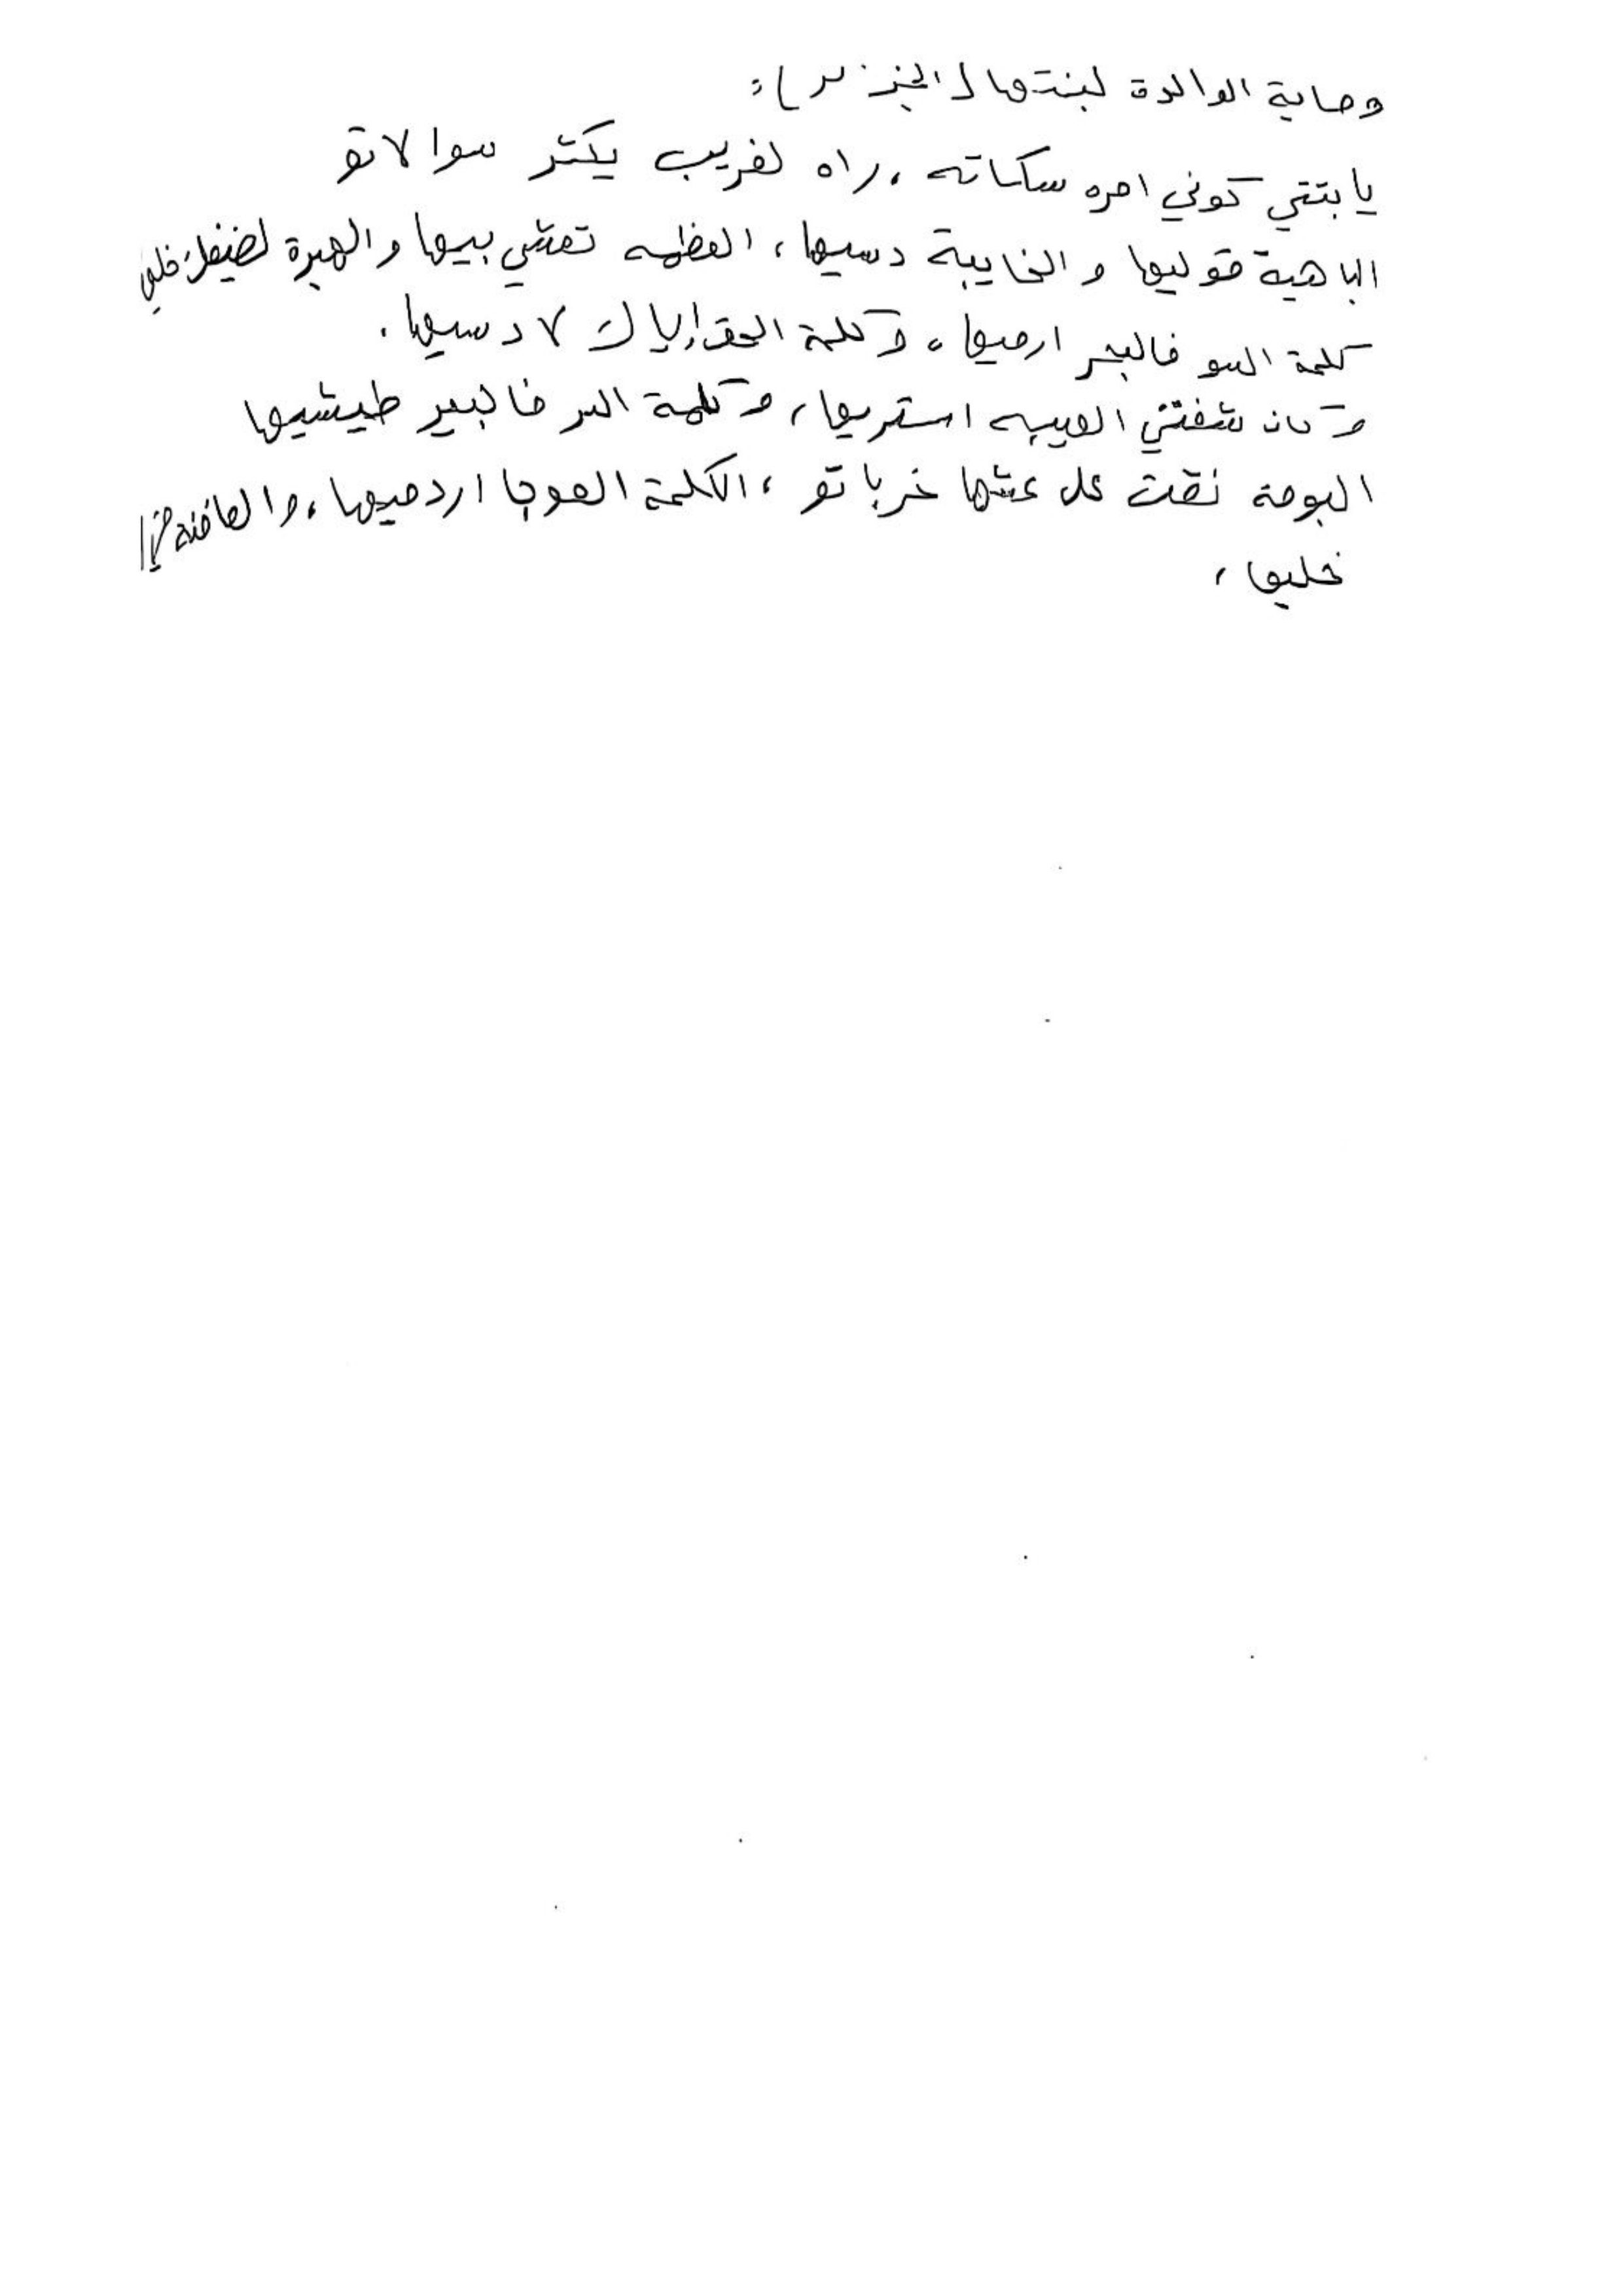 وصاية الوالدة لبنتها ( الجزء ):
يا بنتي كوني امره سكاته، راه لغريب يكثر سوالاتو
الباهية قوليها و الخايبة دسيها، العظمه تعشي بيها والهبرة لضيفك خلي
كلمة السو فالبير ارميها، و كلمة الحق إياك لا دسيها.
و كان شفتي العيبه استريها، و كلمة السر فالبير طيشيها
البومة نقت على عشها خرباتو، الكلمة العوجا اردميها، و العافنة
خليها،